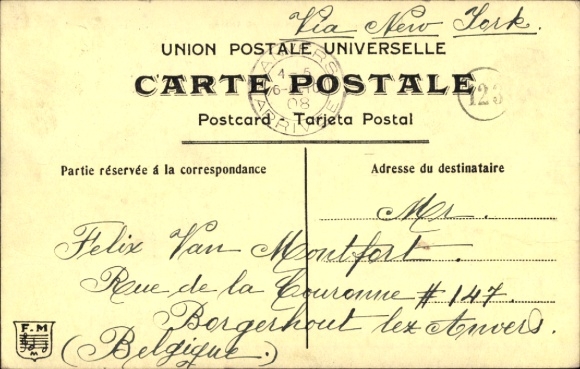 Via New York.
UNION POSTALE UNIVERSELLE
CARTE POSTALE
Postcard - Tarjeta Postal
ANVERS
4-5
08
ARRIVÉE
123
Partie réservée á la correspondance
Adresse du destinataire
Mr.
Felix Van Montfort.
Rue de la Couronne # 147.
Borgerhout lez Anvers.
(Belgique.)
F. M